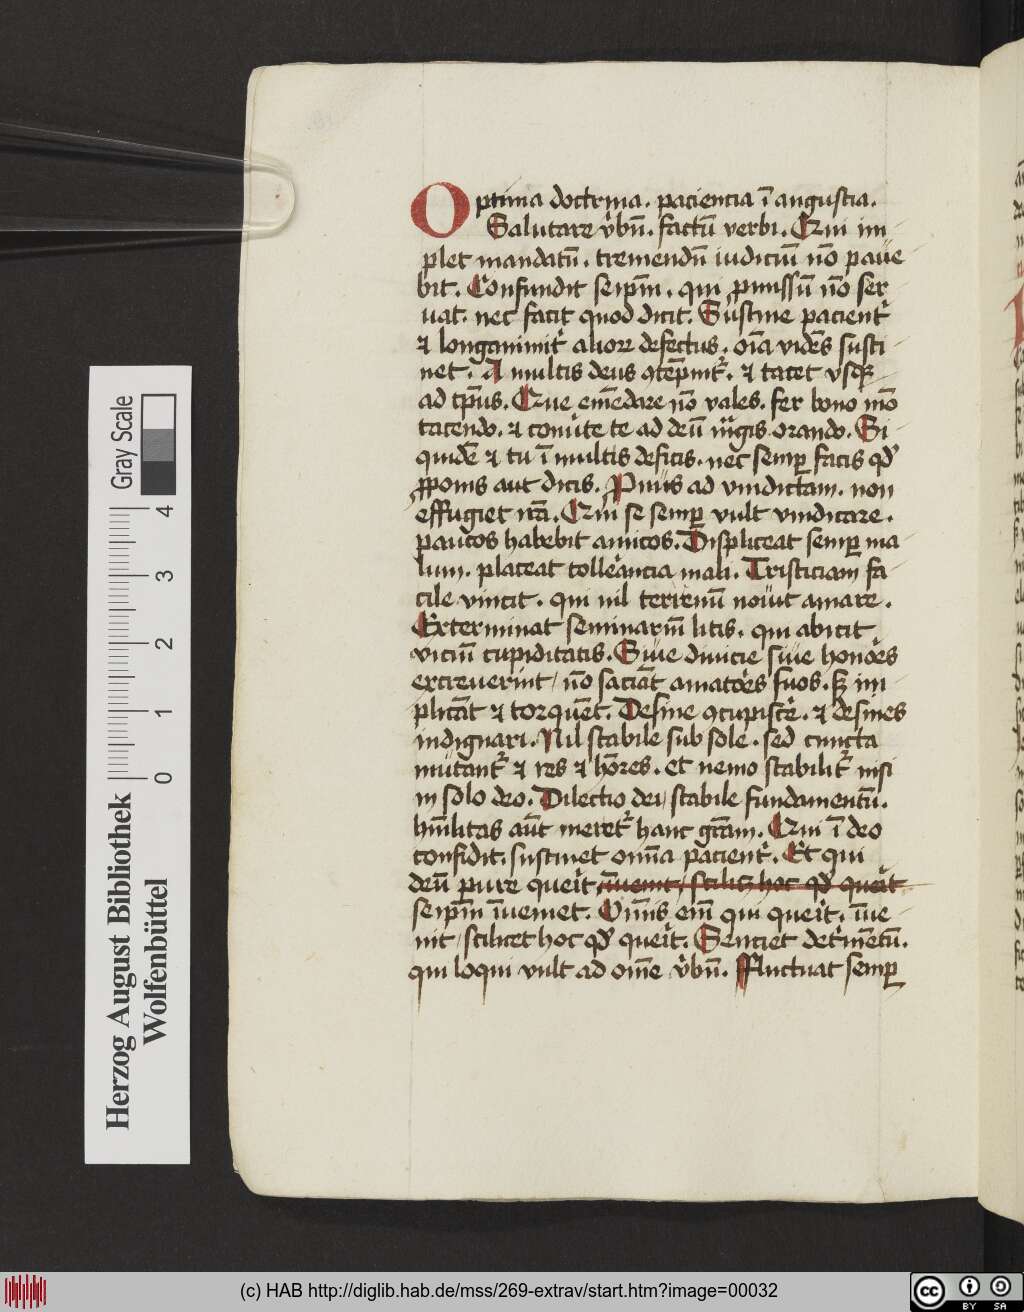 Optima doctrina. paciencia ī angustia.
Salutare v̓bū. factū verbi. Qui im
plet mandatū. tremendū iudiciū nō paue
bit. Confundit seipm̄. qui ꝓmissū nō ser
uat. nec facit quod dicit. Sustine pacient̓
⁊ longanimit̓ alioꝝ defectus. oīa vidēs susti
net. A multis deus ꝯtēpnit᷑. ⁊ tacet vsqꝫ
ad tp̄us. Que emēdare nō vales. fer bono mō
tacendo. ⁊ conu̓te te ad deū mͣgis orando. Si
quidē ⁊ tu ī multis deficis. nec semꝑ facis qd̓
ꝓponis aut dicis. Pnus ad vindictam. non
effugiet ruīā. Qui se semꝑ vult vindicare.
paucos habebit amicos. Displiceat semꝑ ma
lum. placeat tolleͣncia mali. Tristiciam fa
cile vincit. qui nil terrenū nouit amare.
Exterminat seminariū litis. qui abicit
viciū cupiditatis. Siue diuicie siue honor̓es
excreuerint / nō saciāt amator̓es suos. sꝫ im
plicāt ⁊ torquēt. Desine ꝯcupisce̓. ⁊ desines
indignari. Nil stabile sub sole. sed cuncta
mutant᷑ ⁊ res ⁊ hōres. et nemo stabilit᷑ nisi
in solo deo. Dilectio dei / stabile fundamentū.
hūilitas aūt meret᷑ hanc grām. Qui ī deo
confidit. sustinet omīa pacient̓. Et qui
deū pure quer̓it
seipm̄ īueniet. Omīs eī qui quer̓it. īue
nit / scilicet hoc qd̓ quer̓it. Senciet det̓mētū.
qui loqui vult ad om̄e v̓bū. Fluctuat semꝑ
Gray Scale
4 3 2 1 0
Herzog August Bibliothek
Wolfenbüttel
(c) HAB http://diglib.hab.de/mss/269-extrav/start.htm?image=00032
cc BY SA